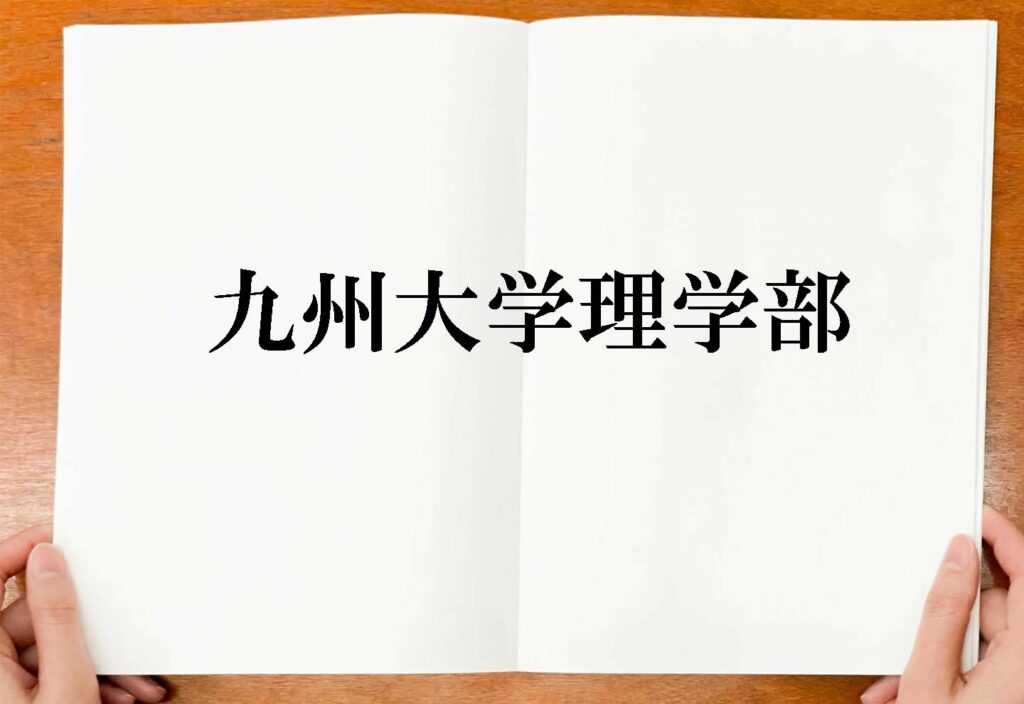 九州大学理学部